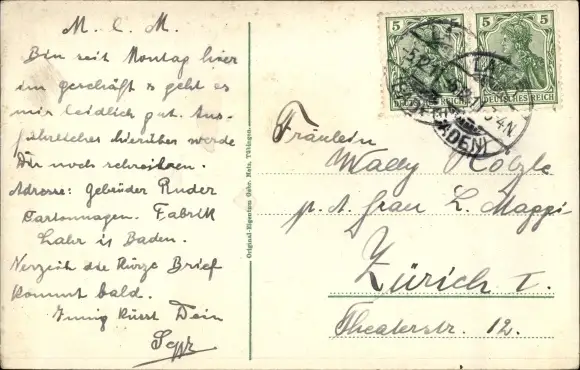 M. l. M.
Bin seit Montag hier
im geschäft & geht es
mir leidlich gut. Aus-
führliches hierüber werde
Dir noch schreiben.
Adresse: Gebrüder Ruder
Cartonnagen. Fabrik
Lahr in Baden.
Verzeih die Kürze Brief
kommt bald.
Innig küsst Dein
Sepp
Original-Eigentum Gebr. Metz, Tübingen.
5 5 5 5
DEUTSCHES REICH
(BADEN)
Fräulein
Wally Hölzle
p. A. frau L. Maggi
Zürich I.
Theaterstr. 12.